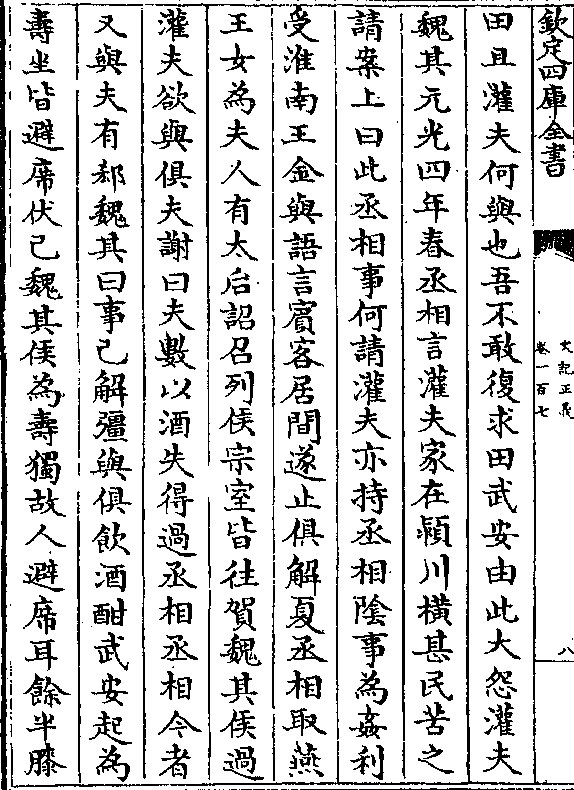 欽定四庫全書
史記正義
卷一百七
八
田且灌夫何與也吾不敢復求田武安由此大怨灌夫
魏其元光四年春丞相言灌夫家在潁川橫甚民苦之
請案上曰此丞相事何請灌夫亦持丞相陰事為姦利
受淮南王金與語言賓客居間遂止俱解夏丞相取燕
王女為夫人有太后詔召列侯宗室皆往賀魏其侯過
灌夫欲與俱夫謝曰夫數以酒失得過丞相丞相今者
又與夫有郄魏其曰事已解彊與俱飲酒酣武安起為
壽坐皆避席伏已魏其侯為壽獨故人避席耳餘半膝